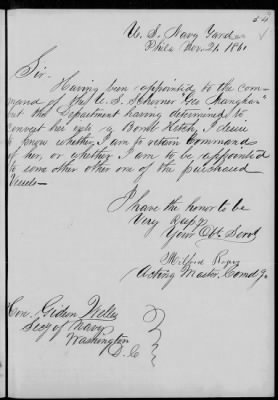 54
U. S. Navy Yard
Phila Nov. 21. 1861
Sir.
Having been appointed to the com-
mand of the U. S. Schooner "Geo Mangham"
but the Department having determined to
convert her into a Bomb Ketch, I desire
to know whether I am to retain Command
of her, or whether I am to be appointed
to some other other one of the purchased
Vessels—
I have the honor to be
Very Resp'y
Your Obt. Servt
Milford
Acting Master. Comd'g.
Hon. Gideon Welles
Secy of Navy
Washington
D. C.